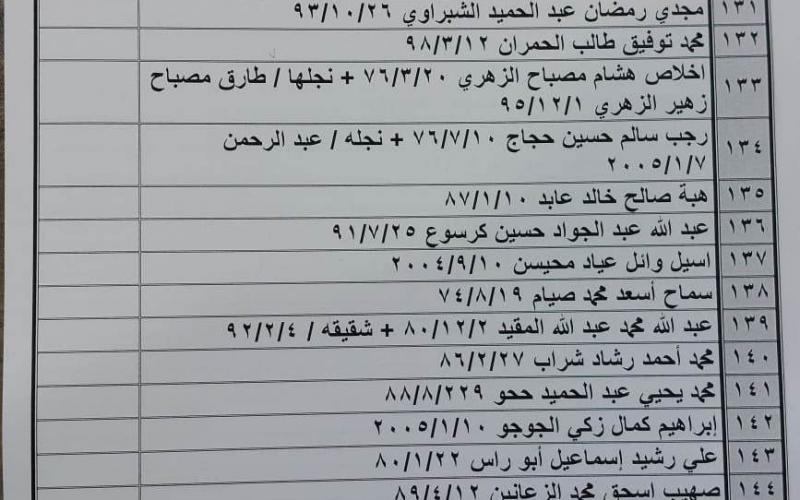 ١٣١ مجدي رمضان عبد الحميد الشبراوي ٩٣/١٠/٢٦
١٣٢ محمد توفيق طالب الحمران ٩٨/٣/١٢
١٣٣ اخلاص هشام مصباح الزهري ٧٦/٣/٢٠ + نجلها / طارق مصباح
زهير الزهري ٩٥/١٢/١
١٣٤ رجب سالم حسين حجاج ٧٦/٧/١٠ + نجله / عبد الرحمن
٢٠٠٥/١/٧
١٣٥ هبة صالح خالد عابد ٨٧/١/١٠
١٣٦ عبد الله عبد الجواد حسين كرسوع ٩١/٧/٢٥
١٣٧ اسيل وائل عياد محيسن ٢٠٠٤/٩/١٠
١٣٨ سماح أسعد محمد صيام ٧٤/٨/١٩
١٣٩ عبد الله محمد عبد الله المقيد ٨٠/١٢/٢ + شقيقه / ٩٢/٢/٤
١٤٠ محمد أحمد رشاد شراب ٨٦/٢/٢٧
١٤١ محمد يحيي عبد الحميد ححو ٨٨/٨/٢٢٩
١٤٢ إبراهيم كمال زكي الجوجو ٢٠٠٥/١/١٠
١٤٣ علي رشيد إسماعيل أبو راس ٨٠/١/٢٢
١٤٤ صهيب اسحق محمد الزعانين ٨٩/٤/١٢